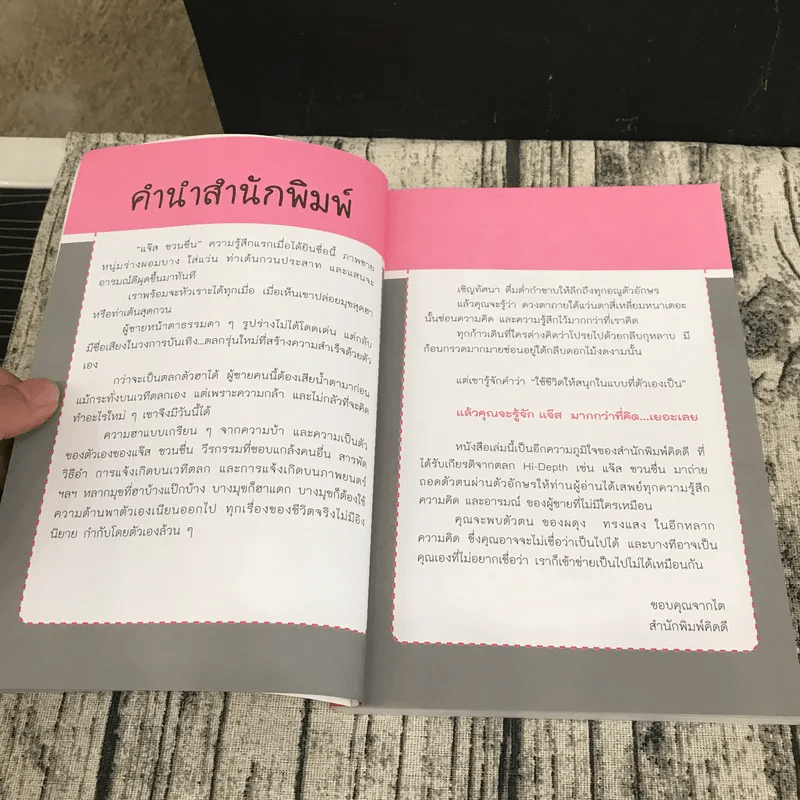 คำนำสำนักพิมพ์
"แจ๊ส ชวนชื่น" ความรู้สึกแรกเมื่อได้ยินชื่อนี้ ภาพชาย
หนุ่มร่างผอมบาง ใส่แว่น ท่าเต้นกวนประสาท และแสนจะ
อารมณ์ดีผุดขึ้นมาทันที
เราพร้อมจะหัวเราะได้ทุกเมื่อ เมื่อเห็นเขาปล่อยมุขสุดฮา
หรือท่าเต้นสุดกวน
ผู้ชายหน้าตาธรรมดา ๆ รูปร่างไม่ได้โดดเด่น แต่กลับ
มีชื่อเสียงในวงการบันเทิง...ตลกรุ่นใหม่ที่สร้างความสำเร็จด้วยตัว
เอง
กว่าจะเป็นตลกตัวฮาได้ ผู้ชายคนนี้ต้องเสียน้ำตามาก่อน
แม้กระทั่งบนเวทีตลกเอง แต่เพราะความกล้า และไม่กลัวที่จะคิด
ทำอะไรใหม่ ๆ เขาจึงมีวันนี้ได้
ความฮาแบบเกรียน ๆ จากความบ้า และความเป็นตัว
ของตัวเองของแจ๊ส ชวนชื่น วีรกรรมที่ชอบแกล้งคนอื่น สารพัด
วิธีอำ การแจ้งเกิดบนเวทีตลก และการแจ้งเกิดบนภาพยนตร์
ฯลฯ หลากมุขที่ฮาบ้างแป๊กบ้าง บางมุขก็ฮาแตก บางมุขก็ต้องใช้
ความด้านพาตัวเองเนียนออกไป ทุกเรื่องของชีวิตจริงไม่มีอิง
นิยาย กำกับโดยตัวเองล้วน ๆ
เชิญทัศนา ดื่มด่ำกำซาบให้ลึกถึงทุกอณูตัวอักษร
แล้วคุณจะรู้ว่า ดวงตาภายใต้แว่นตาสี่เหลี่ยมหนาเตอะ
นั้นซ่อนความคิด และความรู้สึกไว้มากกว่าที่เราคิด
ทุกก้าวเดินที่ใครต่างคิดว่าโปรยไปด้วยกลีบกุหลาบ มี
ก้อนกรวดมากมายซ่อนอยู่ใต้กลีบดอกไม้งดงามนั้น
แต่เขารู้จักคำว่า "ใช้ชีวิตให้สนุกในแบบที่ตัวเองเป็น"
แล้วคุณจะรู้จัก แจ๊ส มากกว่าที่คิด...เยอะเลย
หนังสือเล่มนี้เป็นอีกความภูมิใจของสำนักพิมพ์คิดดี ที่
ได้รับเกียรติจากตลก Hi-Depth เช่น แจ๊ส ชวนชื่น มาถ่าย
ถอดตัวตนผ่านตัวอักษรให้ท่านผู้อ่านได้เสพย์ทุกความรู้สึก
ความคิด และอารมณ์ ของผู้ชายที่ไม่มีใครเหมือน
คุณจะพบตัวตน ของผดุง ทรงแสง ในอีกหลาก
ความคิด ซึ่งคุณอาจจะไม่เชื่อว่าเป็นไปได้ และบางทีอาจเป็น
คุณเองที่ไม่อยากเชื่อว่า เราก็เข้าข่ายเป็นไปไม่ได้เหมือนกัน
ขอบคุณจากใต
สำนักพิมพ์คิดดี